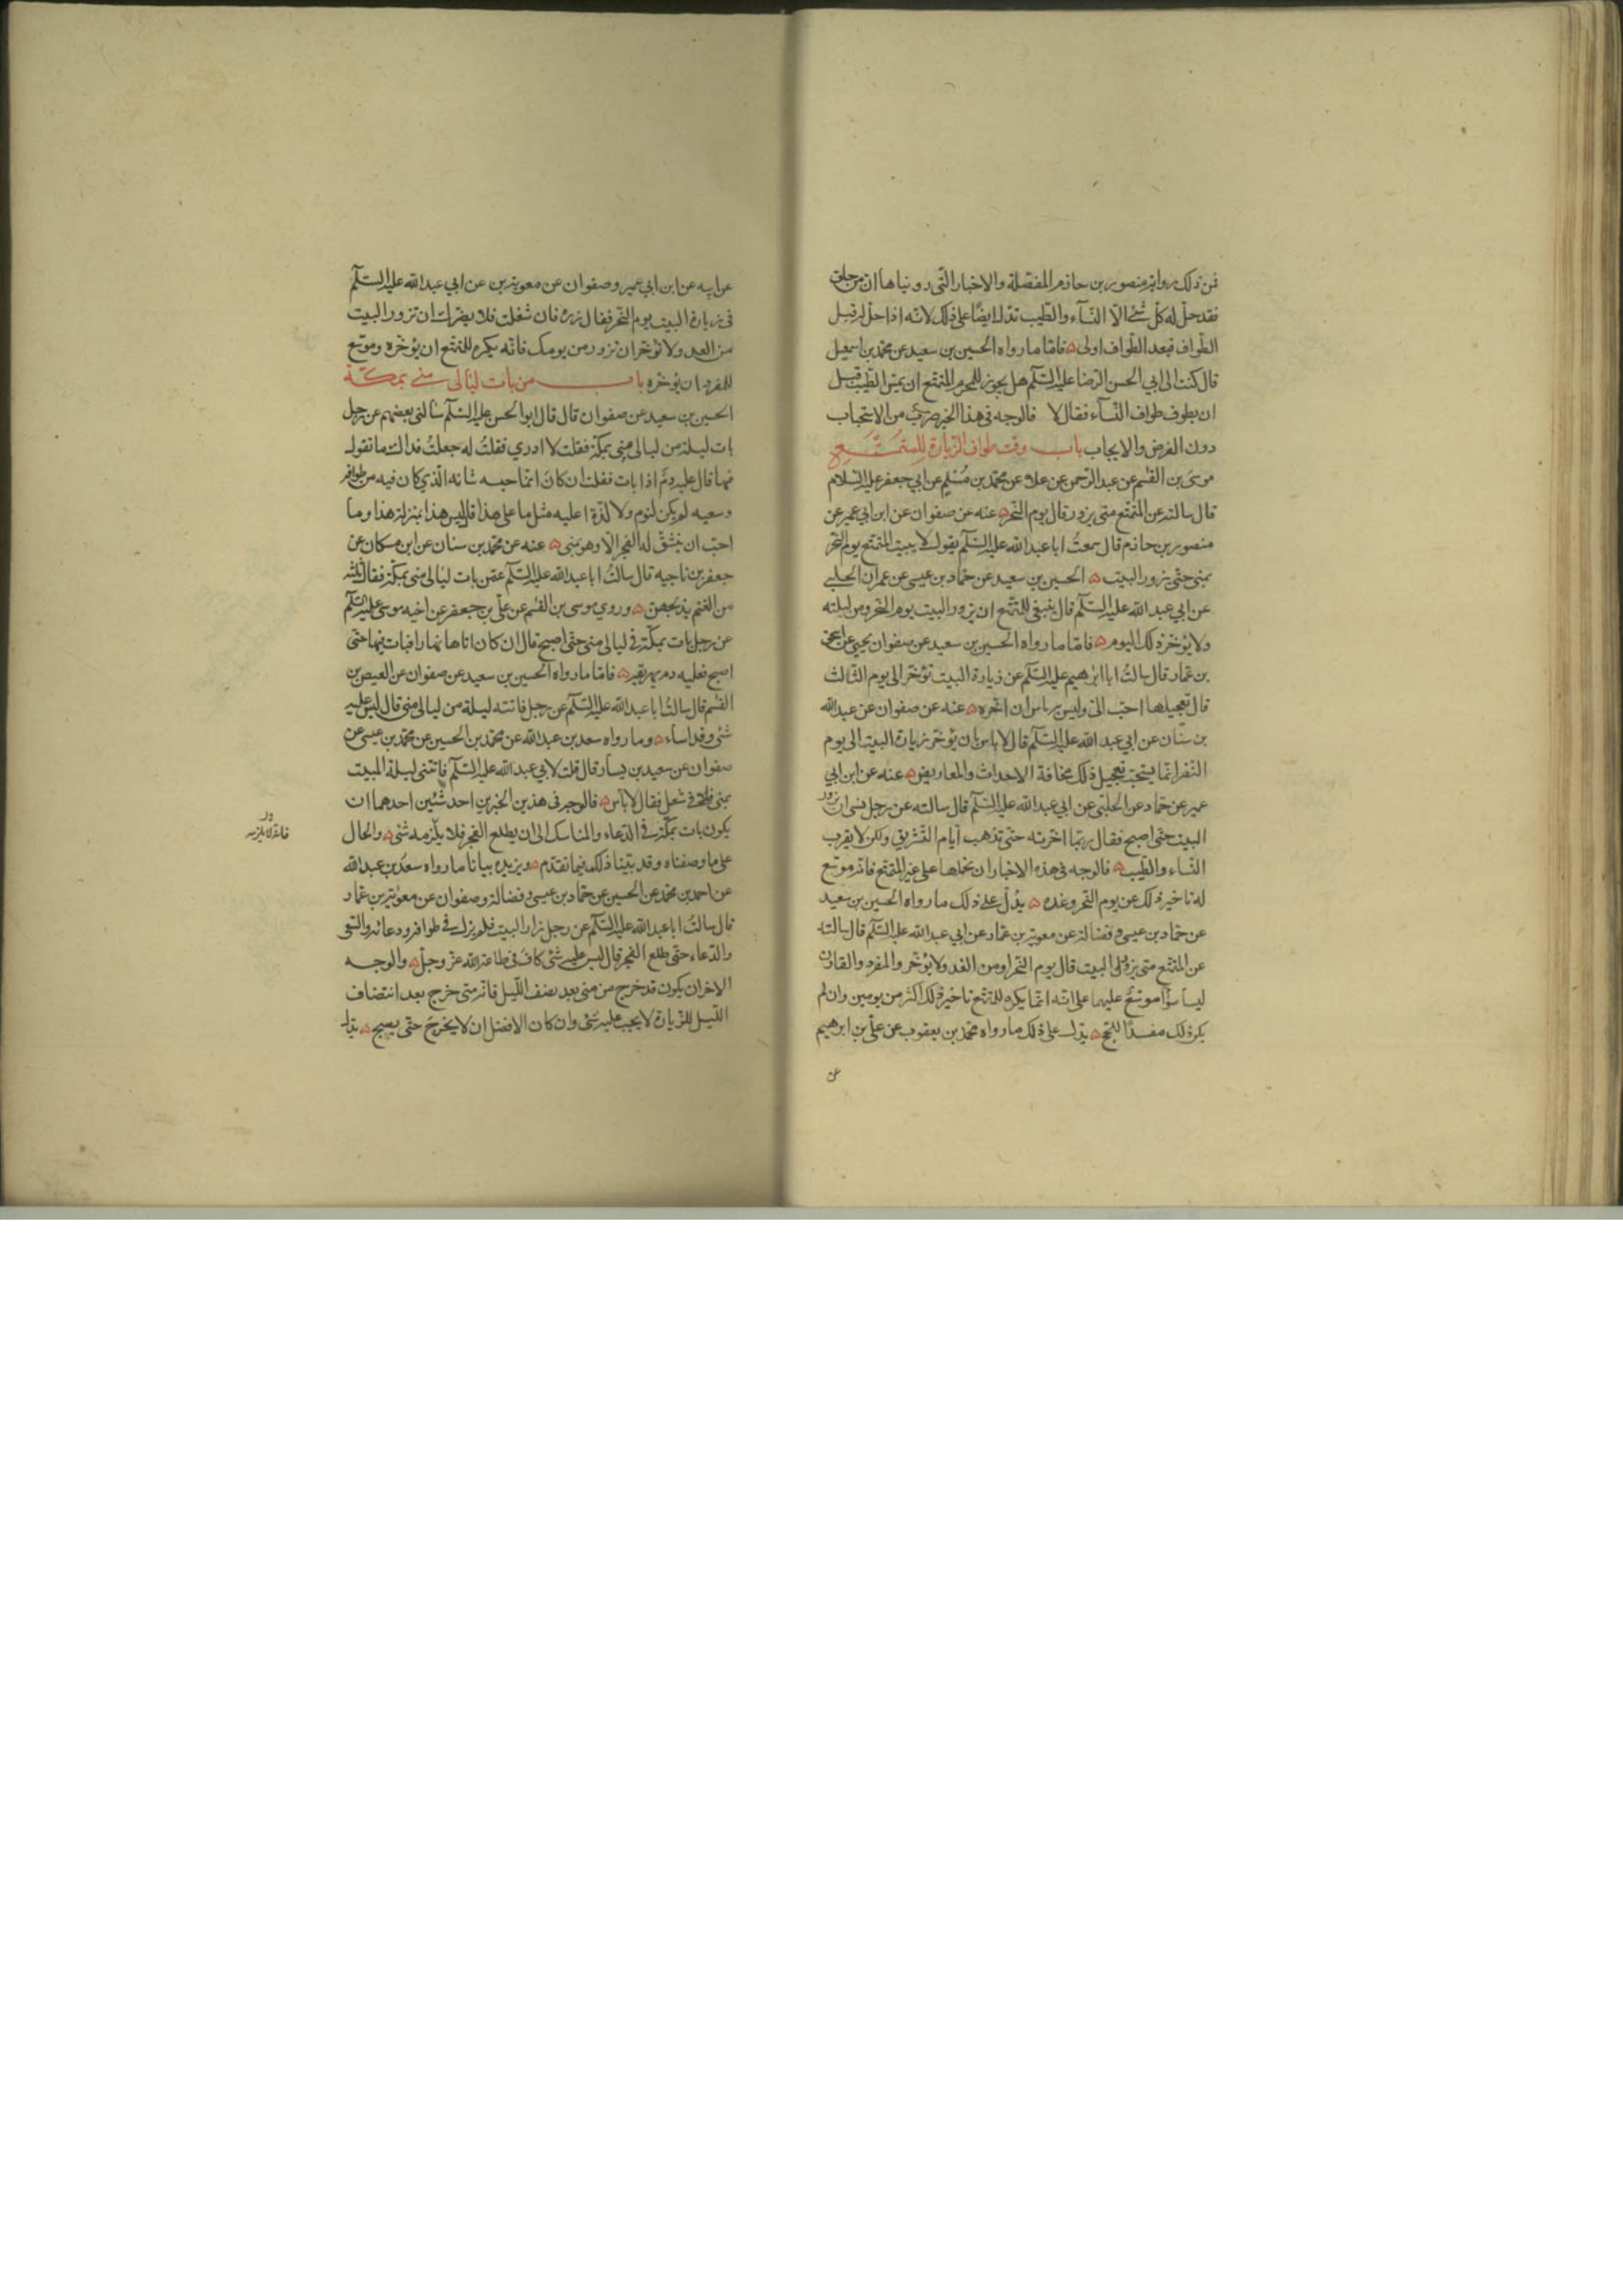 فمن ذلك رواية منصور بن حازم المفصلة والاخبار التي رويناها ان من حلق
فقد حل له كل شئ الا النساء والطيب تدل ايضا على ذلك لانه اذا حل له قبل
الطواف فبعد الطواف اولى ه فاما ما رواه الحسين بن سعيد عن محمد بن اسمعيل
قال كتبت الى ابي الحسن الرضا عليه السلم هل يجوز للمحرم المتمتع ان يمس الطيب قبل
ان يطوف طواف النساء فقال لا فالوجه في هذا الخبر ضرب من الاستحباب
دون الفرض والايجاب باب وقت طواف الزيارة للمتمتع
موسى بن القسم عن عبد الرحمن عن علاء عن محمد بن مسلم عن ابي جعفر عليه السلام
قال سالته عن المتمتع متى يزور قال يوم النحر ه عنه عن صفوان عن ابن ابي عمير عن
منصور بن حازم قال سمعت ابا عبد الله عليه السلم يقول لا يبيت المتمتع يوم النحر
بمنى حتى يزور البيت ه الحسين بن سعيد عن حماد بن عيسى عن عمران الحلبي
عن ابي عبد الله عليه السلم قال ينبغي للمتمتع ان يزور البيت يوم النحر ومن ليلته
ولا يؤخر ذلك اليوم ه فاما ما رواه الحسين بن سعيد عن صفوان بن يحيى عن اسحق
بن عمار قال سالت ابا ابرهيم عليه السلم عن زيارة البيت تؤخر الى يوم الثالث
قال تعجيلها احب الي وليس به باس ان اخره ه عنه عن صفوان عن عبد الله
بن سنان عن ابي عبد الله عليه السلم قال لا باس بان يؤخر زيارة البيت الى يوم
النفر انما يستحب تعجيل ذلك مخافة الاحداث والمعاريض ه عنه عن ابن ابي
عمير عن حماد عن الحلبي عن ابي عبد الله عليه السلم قال سالته عن رجل نسى ان يزور
البيت حتى اصبح فقال ربما اخرته حتى تذهب ايام التشريق ولكن لا يقرب
النساء والطيب ه فالوجه في هذه الاخبار ان نحملها على غير المتمتع فانه موسع
له تاخير ذلك عن يوم النحر وغده ه يدل على ذلك ما رواه الحسين بن سعيد
عن حماد بن عيسى وفضالة عن معوية بن عمار عن ابي عبد الله عليه السلم قال سالته
عن المتمتع متى يزور البيت قال يوم النحر او من الغد ولا يؤخر والمفرد والقارن
ليسا سواء موسع عليهما على انه انما يكره للمتمتع تاخير ذلك اكثر من يومين وان لم
يكن ذلك مفسدا للحج ه يدل على ذلك ما رواه محمد بن يعقوب عن علي بن ابرهيم
عن
عن ابيه عن ابن ابي عمير وصفوان عن معوية بن عن ابي عبد الله عليه السلم
في زيارة البيت يوم النحر فقال زره فان شغلت فلا يضرك ان تزور البيت
من الغد ولا تؤخر ان تزور من يومك فانه يكره للمتمتع ان يؤخره وموسع
للمفرد ان يؤخره باب من بات ليالى منى بمكة
الحسين بن سعيد عن صفوان قال قال ابو الحسن عليه السلم سالني بعضهم عن رجل
بات ليلة من ليالى منى بمكة فقلت لا ادري فقلت له جعلت فداك ما تقول
فيها قال عليه دم اذا بات فقلت ان كان انما حبسه شانه الذي كان فيه من طوافه
وسعيه لم يكن لنوم ولا لذة اعليه مثل ما على هذا قال ليس هذا بمنزلة هذا وما
احب ان ينشق له الفجر الا وهو بمنى ه عنه عن محمد بن سنان عن ابن مسكان عن
جعفر بن ناجيه قال سالت ابا عبد الله عليه السلم عمن بات ليالى منى بمكة فقال ثلثة
من الغنم يذبحهن ه وروي موسى بن القسم عن علي بن جعفر عن اخيه موسى عليه السلم
عن رجل بات بمكة في ليالى منى حتى اصبح قال ان كان اتاها نهارا فبات فيها حتى
اصبح فعليه دم يهريقه ه فاما ما رواه الحسين بن سعيد عن صفوان عن العيص بن
القسم قال سالت ابا عبد الله عليه السلم عن رجل فاتته ليلة من ليالى منى قال ليس عليه
شئ وقد اساء ه وما رواه سعد بن عبد الله عن محمد بن الحسين عن محمد بن عيسى عن
صفوان عن سعيد بن يسار قال قلت لابي عبد الله عليه السلم فاتتني ليلة المبيت
بمنى في شغل فقال لا بأس ه فالوجه في هذين الخبرين احد شئين احدهما ان
يكون بات بمكة في الدعاء والمناسك الى ان يطلع الفجر فلا يلزمه شئ ه والحال
فانه لا يلزمه
على ما وصفناه وقد بينا ذلك فيما تقدم ه ويزيده بيانا ما رواه سعد بن عبد الله
عن احمد بن محمد عن الحسين عن حماد بن عيسى وفضالة وصفوان عن معوية بن عمار
قال سالت ابا عبد الله عليه السلم عن رجل زار البيت فلم يزل في طوافه ودعائه والسعي
والدعاء حتى طلع الفجر قال ليس عليه شئ كان في طاعة الله عز وجل ه والوجه
الاخر ان يكون قد خرج من منى بعد نصف الليل فانه متى خرج بعد انتصاف
الليل للزيارة لا يجب عليه شئ وان كان الافضل ان لا يخرج حتى يصبح ه يدل